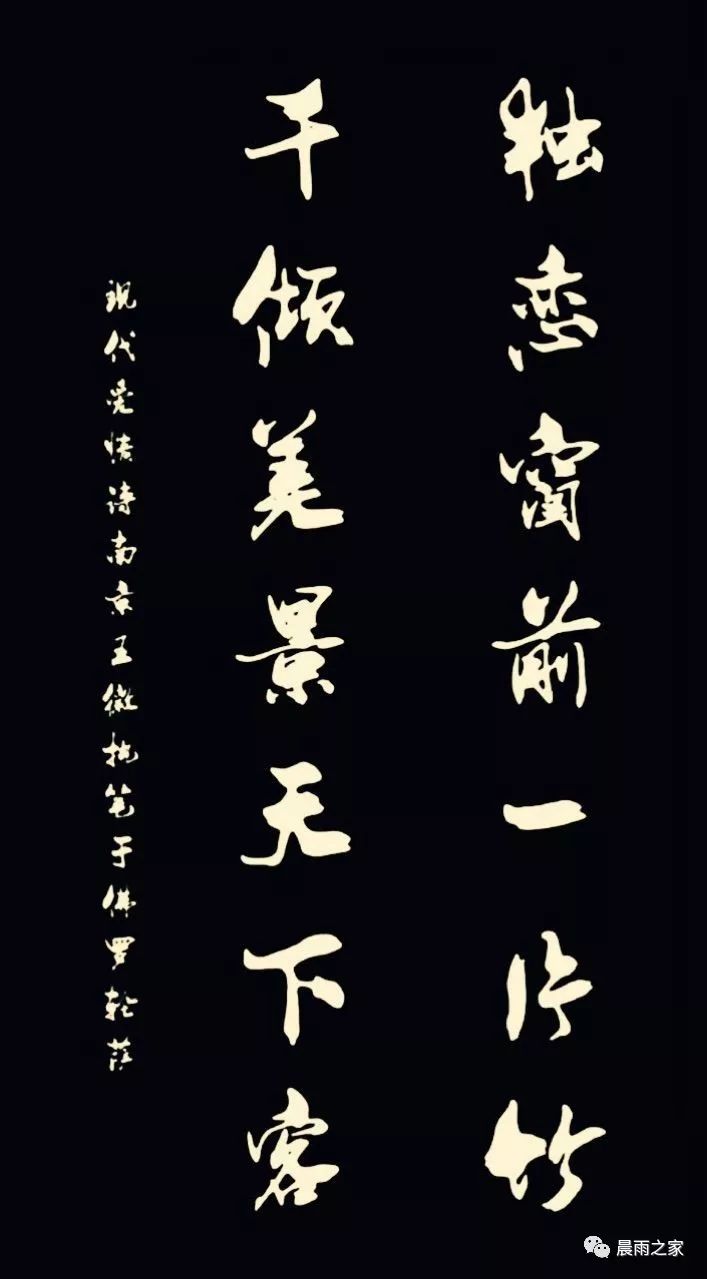 独恋窗前一片竹
千倾美景天下客
现代爱情诗南京王微执笔于佛罗轮萨
晨雨之家